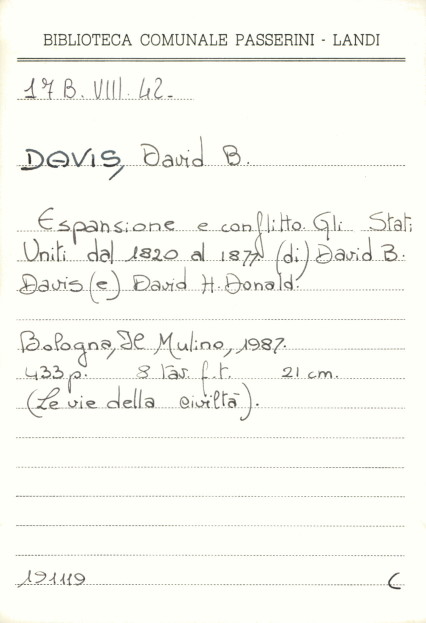 BIBLIOTECA COMUNALE PASSERINI - LANDI
17 B. VIII. 42-
DAVIS, David B.
Espansione e conflitto. Gli Stati
Uniti dal 1820 al 1877 (di) David B.
Davis (e) David H. Donald.
Bologna, Il Mulino, 1987.
433 p. 8 tav. f.t. 21 cm.
(Le vie della civiltà).
191119 C